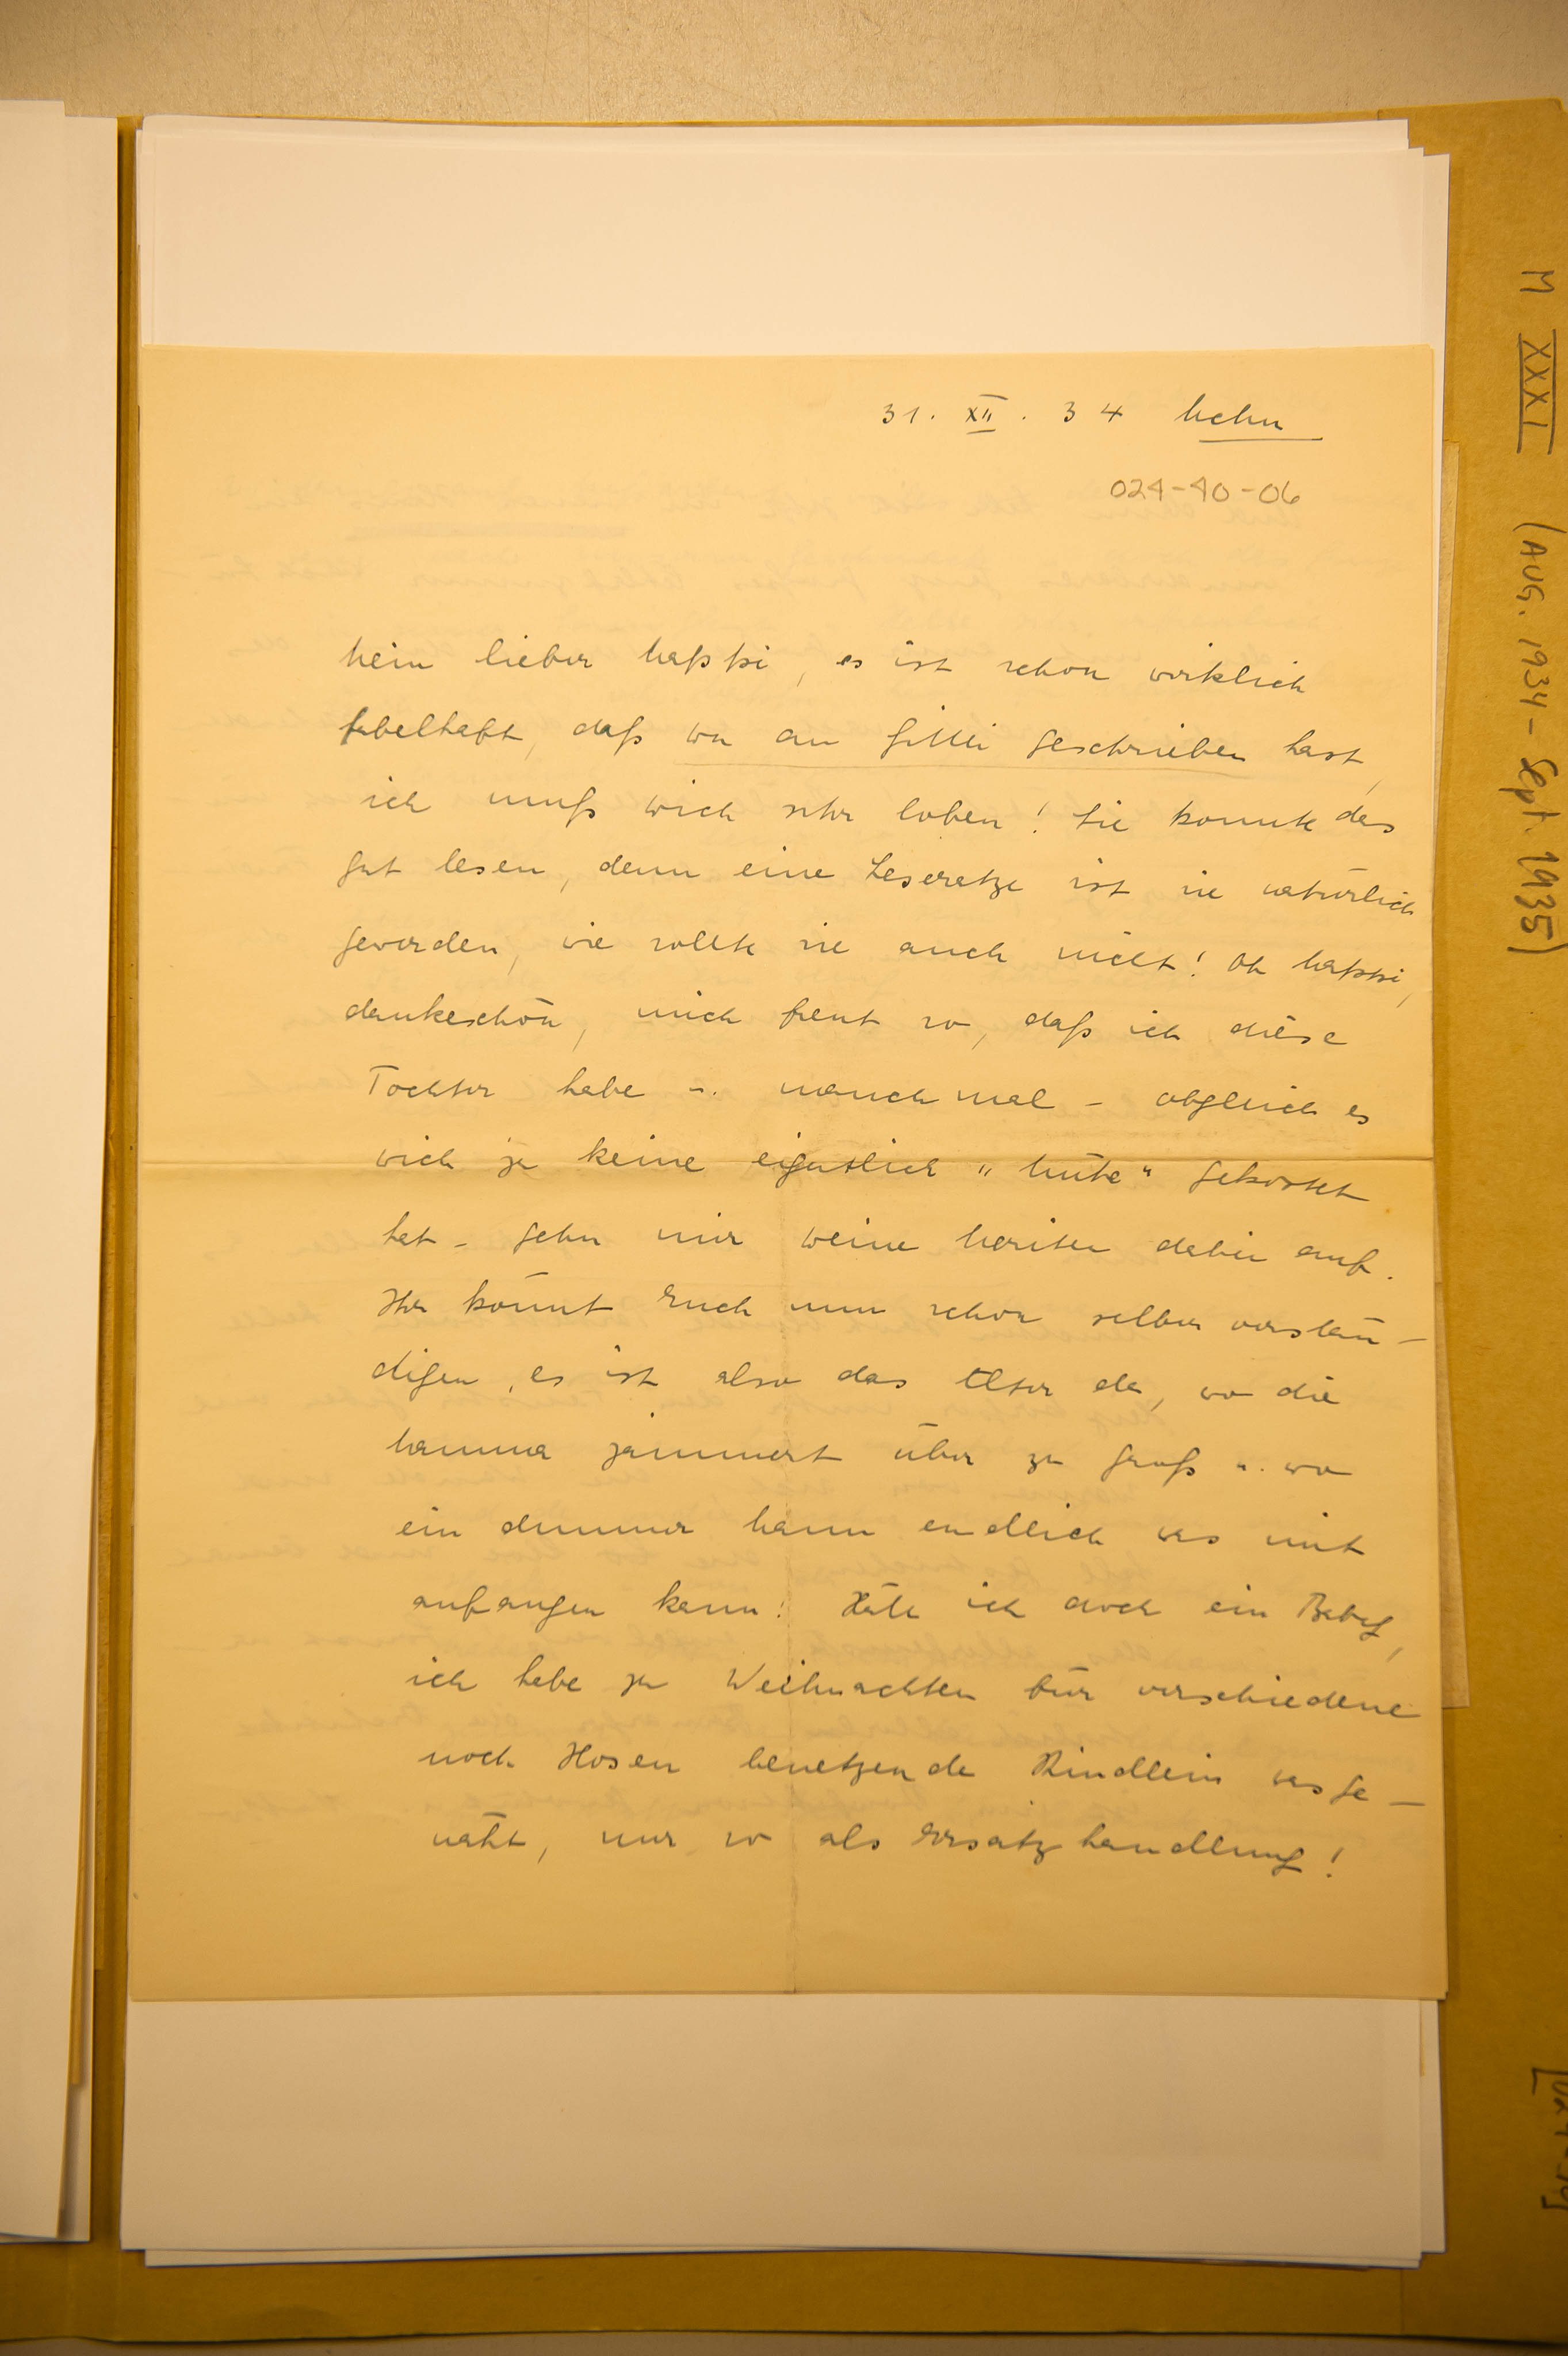 31. XII. 34 Mehn
024-40-06
Mein lieber Mappi, es ist schon wirklich
fabelhaft, daß du an Gitti geschrieben hast,
ich muß dich sehr loben! Sie konnte das
gut lesen, denn eine Leseratze ist sie natürlich
geworden, wie sollte sie auch nicht! Oh Mappi,
dankeschön, mich freut so, daß ich diese
Tochter habe u. manchmal – obgleich es
dich ja keine eigentlich „Mühe“ gekostet
hat – gehn mir deine Meriten dabei auf.
Ihr könnt Euch nun schon selber verstän–
digen, es ist also das Alter da, wo die
Mamma jammert über zu groß u. wo
ein dummer Mann endlich was mit
anfangen kann! Hätte ich doch ein Baby,
ich habe zu Weihnachten für verschiedene
noch Hosen benetzende Kindlein was ge–
näht, nur so als Ersatzhandlung!
M XXXI (AUG. 1934 – Sept. 1935)